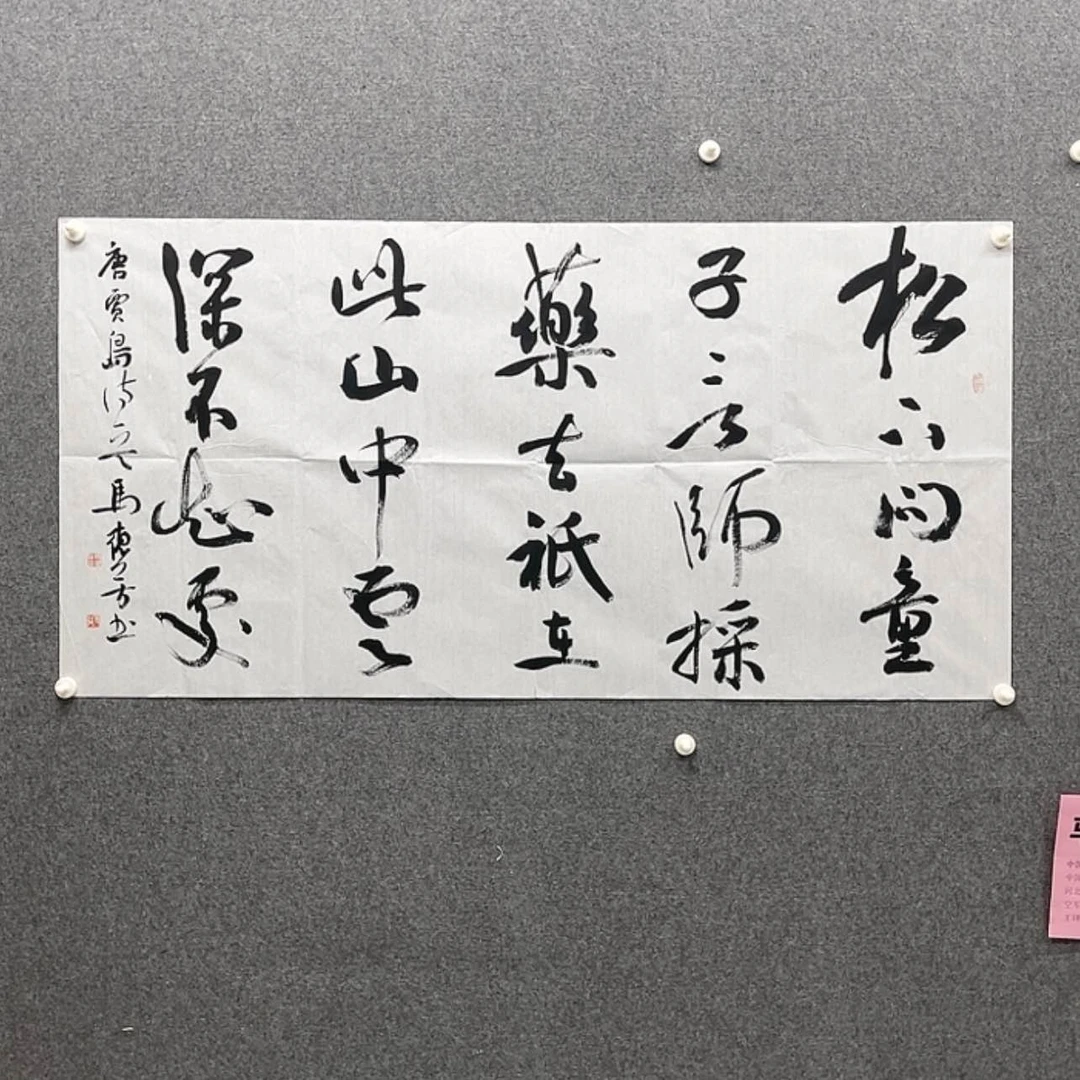 松下問童
子言師採
藥去祇在
此山中雲
深不知處
唐賈島詩一首 馬書
中国
中国